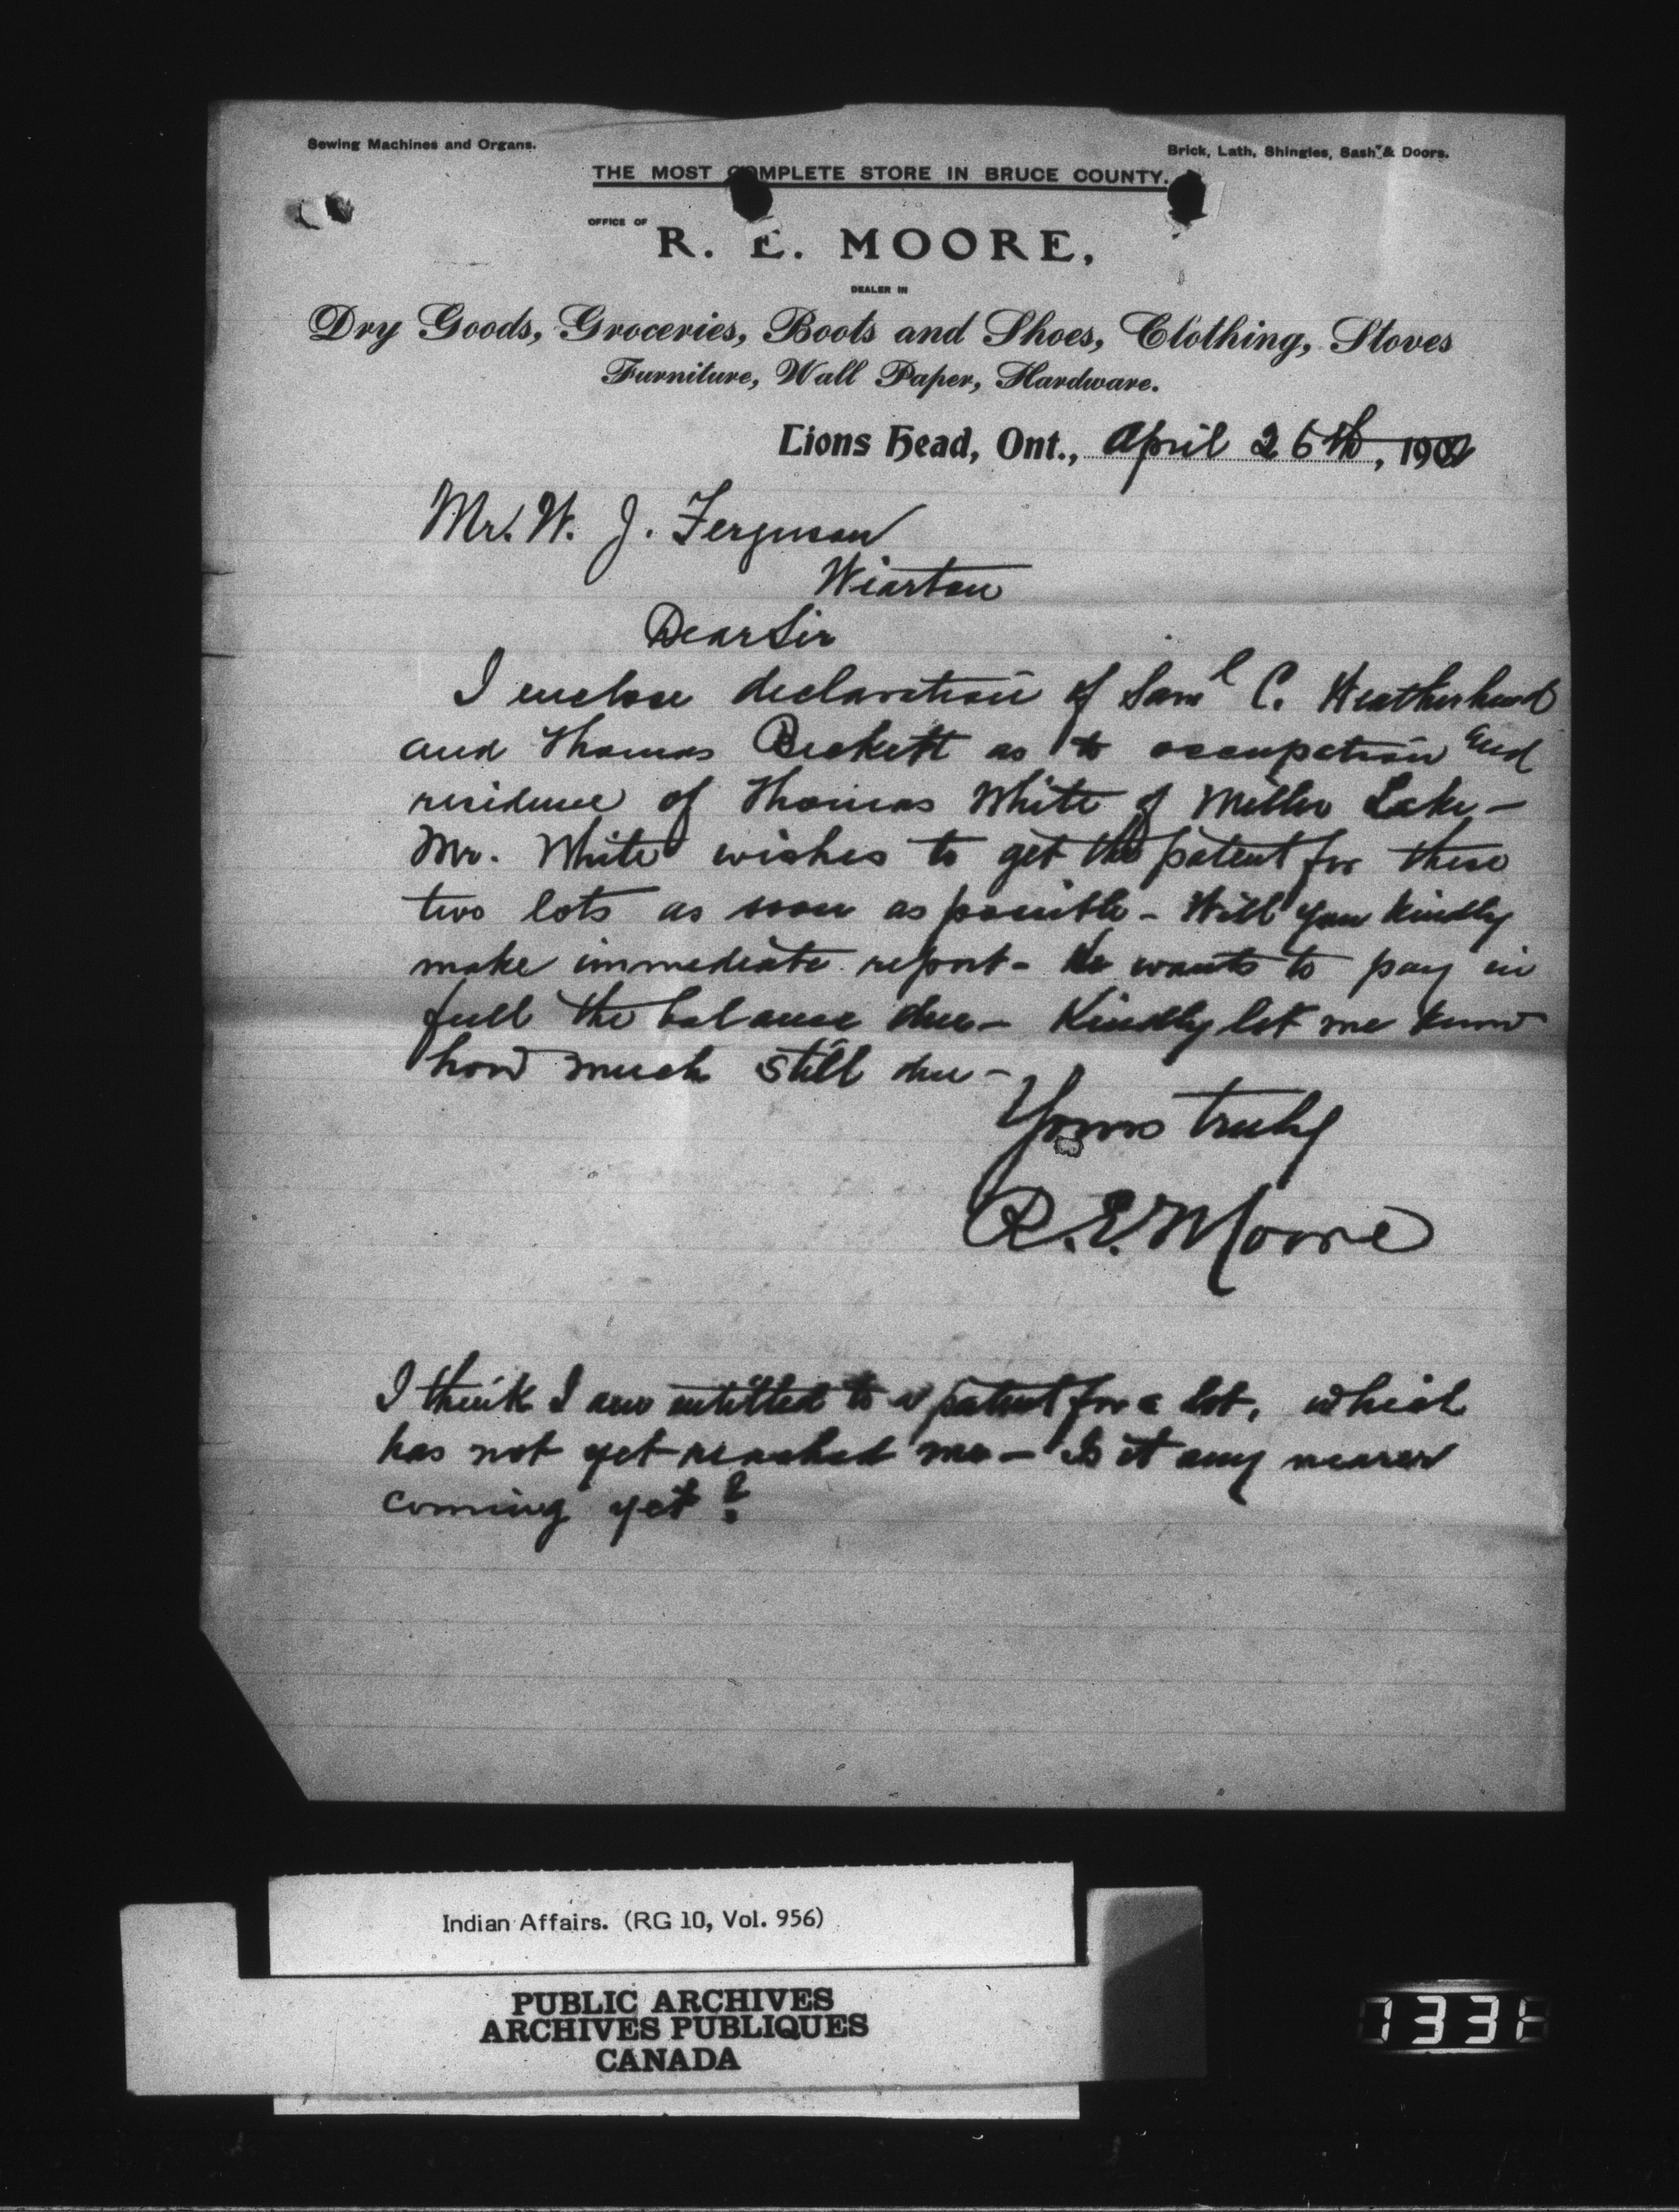 Sewing Machines and Organs.
Brick, Lath, Shingles, Sash & Doors.
THE MOST COMPLETE STORE IN BRUCE COUNTY.
OFFICE OF
R. E. MOORE,
DEALER IN
Dry Goods, Groceries, Boots and Shoes, Clothing, Stoves
Furniture, Wall Paper, Hardware.
Lions Head, Ont., April 26th, 190
Mr. W. J. Ferguson
Wiarton
Dear Sir
I enclose declaration of Saml C. Weatherhead
and Thomas Beckett as to occupation and
residence of Thomas White of Miller Lake -
Mr. White wishes to get the patent for these
two lots as soon as possible - Will you kindly
make immediate report - He wants to pay in
full the balance due - Kindly let me know
how much still due -
Yours truly
R. E. Moore
I think I am entitled to a patent for a lot, which
has not yet reached me - Is it any nearer
coming yet?
Indian Affairs. (RG 10, Vol. 956)
PUBLIC ARCHIVES
ARCHIVES PUBLIQUES
CANADA